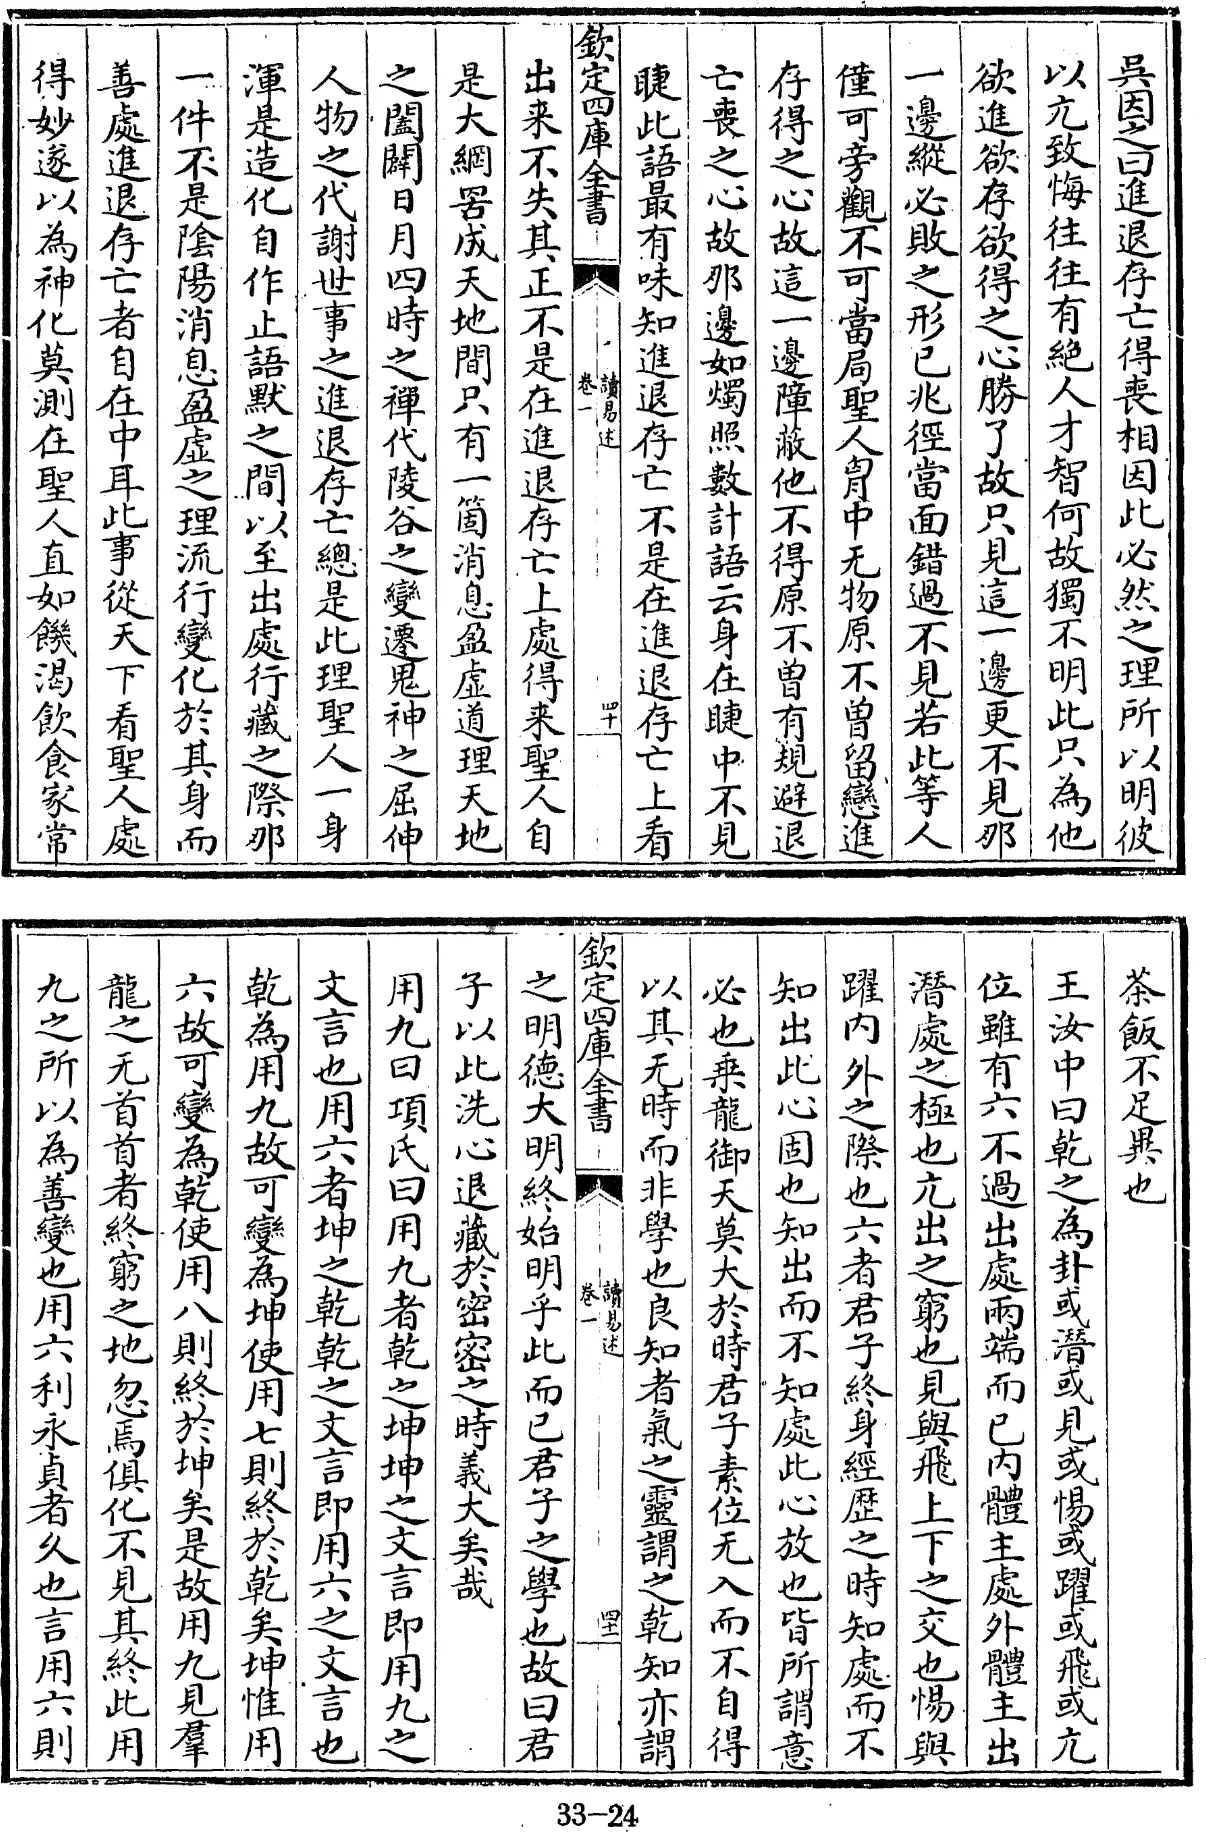 吳因之曰進退存亡得喪相因此必然之理所以明彼
以亢致悔往往有絶人才智何故獨不明此只為他
欲進欲存欲得之心勝了故只見這一邊更不見那
一邊縱必敗之形已兆徑當面錯過不見若此等人
僅可旁觀不可當局聖人胷中无物原不曾留戀進
存得之心故這一邊障蔽他不得原不曾有規避退
亡喪之心故那邊如燭照數計語云身在睫中不見
睫此語最有味知進退存亡不是在進退存亡上看
欽定四庫全書
讀易述
卷一
四十
出来不失其正不是在進退存亡上處得来聖人自
是大網罟成天地間只有一箇消息盈虛道理天地
之闔闢日月四時之禪代陵谷之變遷鬼神之屈伸
人物之代謝世事之進退存亡總是此理聖人一身
渾是造化自作止語默之間以至出處行藏之際那
一件不是陰陽消息盈虛之理流行變化於其身而
善處進退存亡者自在中耳此事從天下看聖人處
得妙遂以為神化莫測在聖人直如饑渴飲食家常
茶飯不足異也
王汝中曰乾之為卦或潛或見或惕或躍或飛或亢
位雖有六不過出處兩端而已内體主處外體主出
潛處之極也亢出之窮也見與飛上下之交也惕與
躍内外之際也六者君子終身經歷之時知處而不
知出此心固也知出而不知處此心放也皆所謂意
必也乘龍御天莫大於時君子素位无入而不自得
以其无時而非學也良知者氣之靈謂之乾知亦謂
欽定四庫全書
讀易述
卷一
四十一
之明德大明終始明乎此而已君子之學也故曰君
子以此洗心退藏於密密之時義大矣哉
用九曰項氏曰用九者乾之坤坤之文言即用九之
文言也用六者坤之乾乾之文言即用六之文言也
乾為用九故可變為坤使用七則終於乾矣坤惟用
六故可變為乾使用八則終於坤矣是故用九見羣
龍之无首首者終窮之地忽焉俱化不見其終此用
九之所以為善變也用六利永貞者久也言用六則
33-24